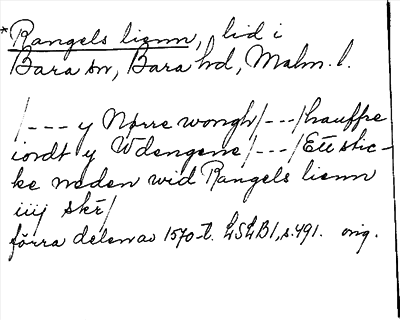 *Rangels lienn, lid i
Bara sn, Bara hd, Malm. l.
/--- y Nørre wongh/---/hauffre
iordt y Wdengene/---/Ett stic-
ke neden wid Rangels lienn
iiij skr/
förra delen av 1570-t. LSLB1, s. 491. orig.